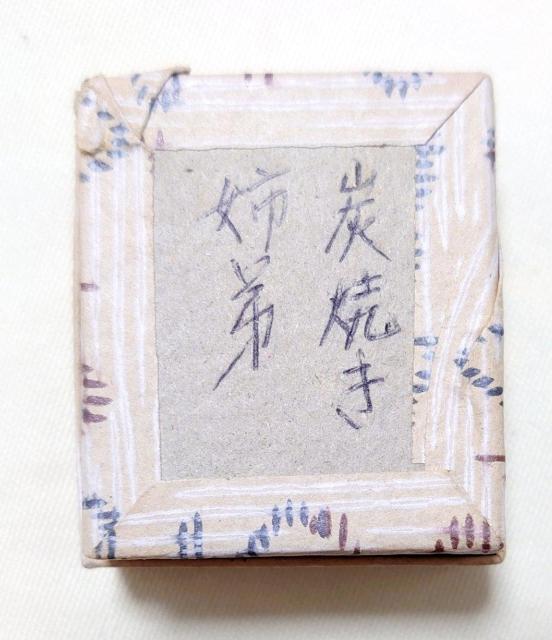 炭焼き
姉弟